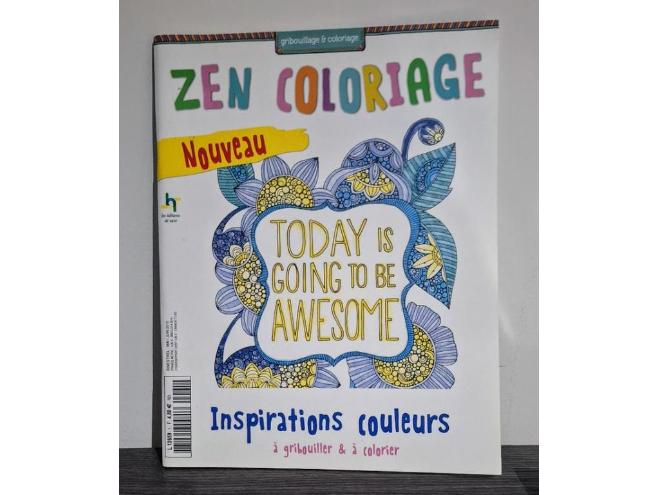 gribouillage & coloriage
ZEN COLORIAGE
Nouveau
TODAY IS
GOING TO BE
AWESOME
Inspirations couleurs
à gribouiller & à colorier